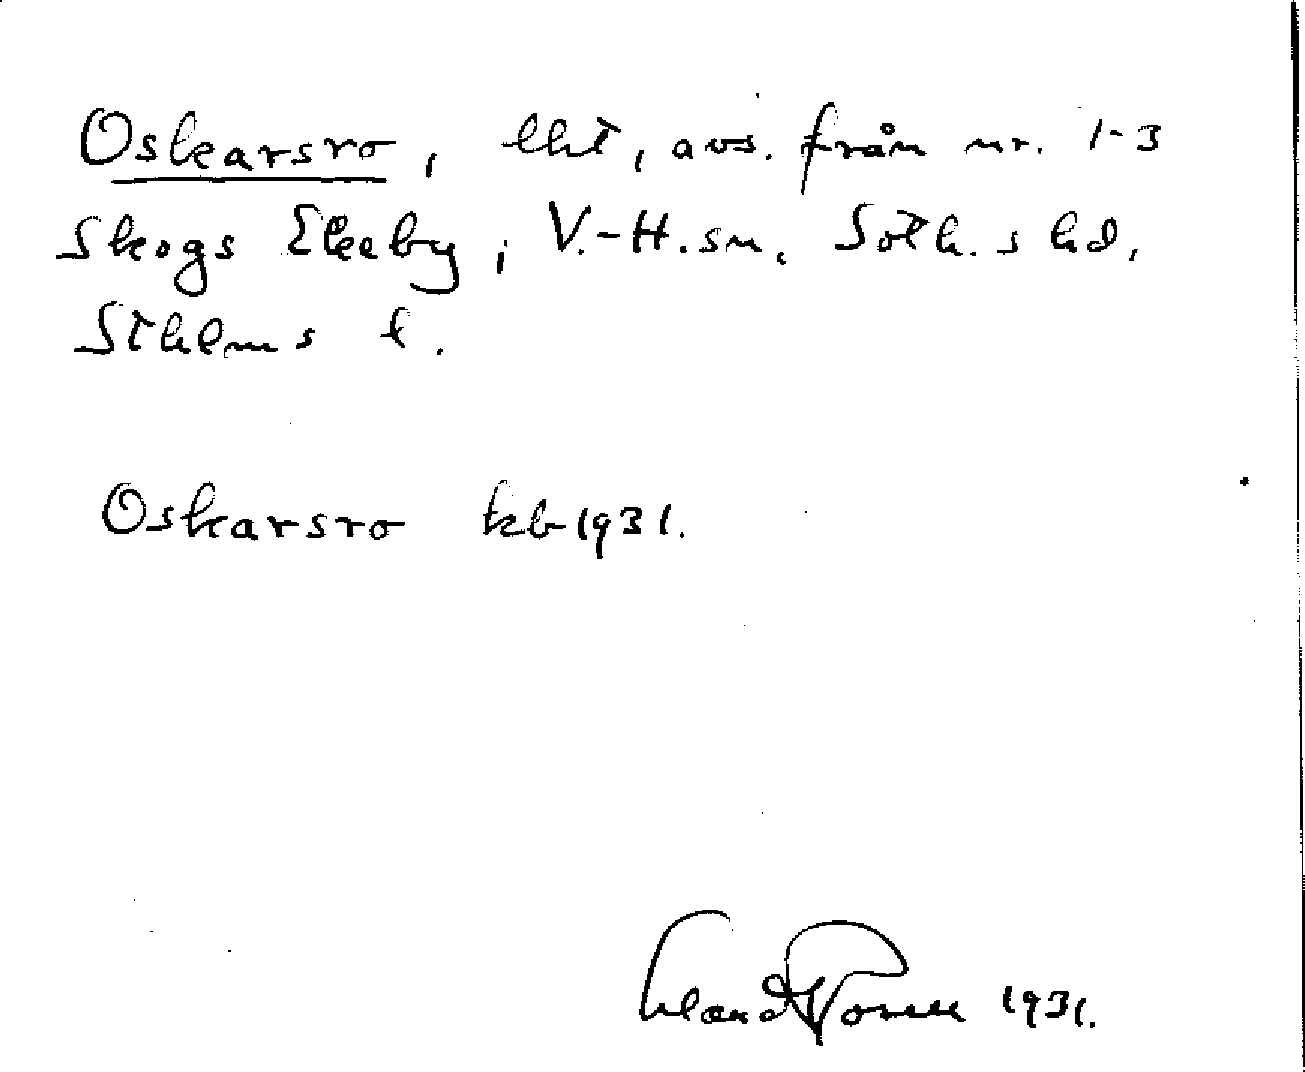 Oskarsro, lht, avs. från nr. 1-3
Skogs Ekeby, V.-H. sn. Soth. s hd,
Sthlms l.
Oskarsro kb 1931.
1931.